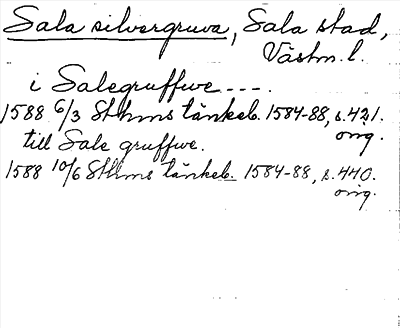 Sala silvergruva, Sala stad,
Västm. l.
i Salegruffwe ----.
1588 6/3 Sthms tänkeb. 1584-88, s. 421.
orig.
till Sale gruffwe.
1588 10/6 Sthms tänkeb. 1584-88, s. 440.
orig.